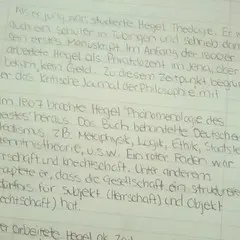 er jung war, studierte Hegel Theologie. Er
auch ein Schüler in Tübingen und schrieb dann
sein erstes Manuskript. Im Anfang der 1800er
arbeitete Hegel als Privatdozent im Jena, aber
bekam kein Geld. Zu diesem Zeitpunkt
er das kritische Journal der Philosophie mit
1807 brachte Hegel "Phänomenologie des
Geistes" heraus. Das Buch behandelte Deutschen
z.B. Metaphysik, Logik, Ethik,
theorie, u.s.w. Ein roter Faden war
schaft und Knechtschaft. Unter anderem
er, dass die Gesellschaft ein strukturelles
für Subjekt (Herrschaft) und Objekt
chtschaft) hat.
arbeitete Hegel als